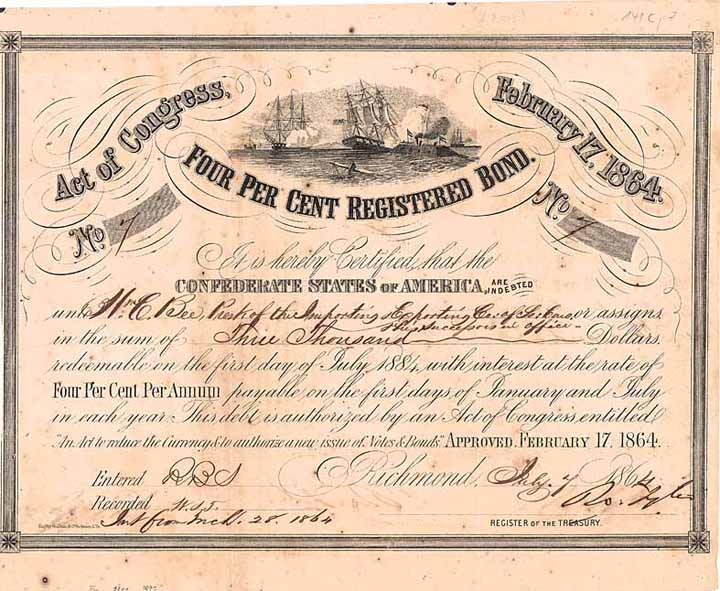 Act of Congress,
February 17, 1864.
FOUR PER CENT REGISTERED BOND.
No. 7
No. 7
It is hereby Certified, that the
CONFEDERATE STATES OF AMERICA, ARE INDEBTED
unto Wm. C. Bee, Prest. of the Importing & Exporting Co. of So. Caro. or assigns
his successors in office
in the sum of Three Thousand Dollars,
redeemable on the first day of July 1884, with interest at the rate of
Four Per Cent Per Annum payable on the first days of January and July
in each year. This debt is authorized by an Act of Congress entitled
"An Act to reduce the Currency & to authorize a new issue of Notes & Bonds" APPROVED, FEBRUARY 17, 1864.
Entered Richmond, July 7 1864
Recorded
Int from Mch. 28. 1864 Ro. Tyler
REGISTER OF THE TREASURY.